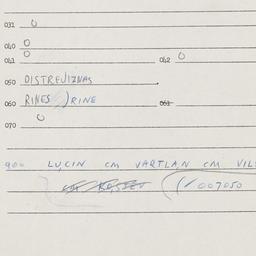 031 0
040 0
041 0 042 0
050 DISTREVIZNAS
060 RINES RINE 061
070 0
900 LUCIN CM VARTLAN CM VIL
007050